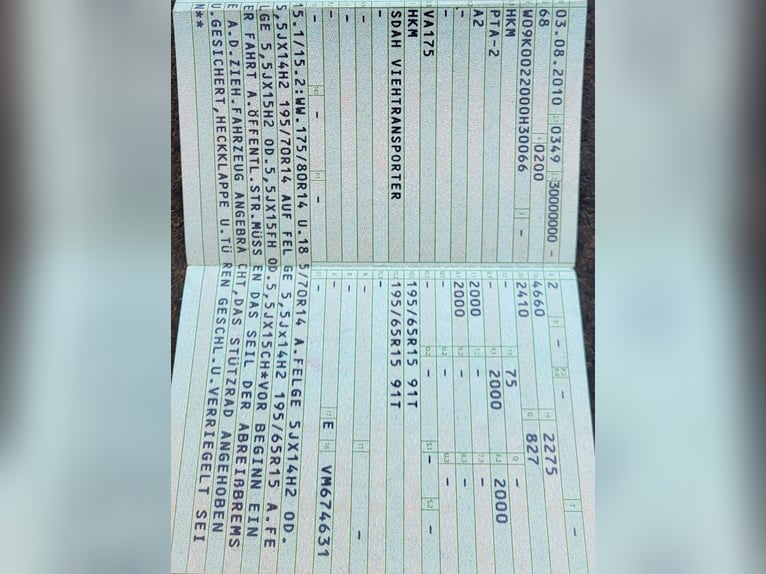 03.08.2010 0349 30000000 - 2 - -
68 0200 4660 2275 -
W09K0022000H30066 - 2410 827
HKM - 75 -
PTA-2 - 2000 2000
A2 2000 - -
- 2000 - -
- - - -
VA175 - - - -
HKM 195/65R15 91T
SDAH VIEHTRANSPORTER 195/65R15 91T
- -
- - -
- -
- - - E VM674631
- - - -
15.1/15.2:WW.175/80R14 U.185/70R14 A.FELGE 5JX14H2 OD.
5,5JX14H2 195/70R14 AUF FELGE 5,5Jx14H2 195/65R15 A.FE
LGE 5,5JX15H2 OD.5,5JX15FH OD.5,5JX15CH*VOR BEGINN EIN
ER FAHRT A.ÖFFENTL.STR.MÜSSEN DAS SEIL DER ABREIßBREMS
E A.D.ZIEH.FAHRZEUG ANGEBRACHT,DAS STÜTZRAD ANGEHOBEN
U.GESICHERT,HECKKLAPPE U.TÜREN GESCHL.U.VERRIEGELT SEI
N**